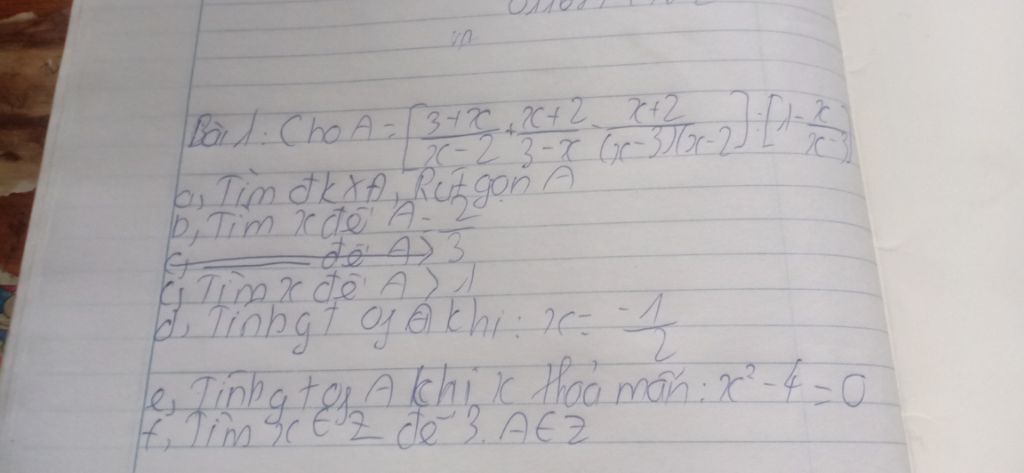 Bài 1: Cho A = [3+x/x-2 + x+2/3-x - x+2/(x-3)(x-2)] : [1 - x/x-3]
a, Tìm đkxđ, Rút gọn A
b, Tìm x để A = 2/3
c, để A >
c, Tìm x để A > 1
d, Tính gt của A khi: x = -1/2
e, Tính gt của A khi x thoả mãn: x² - 4 = 0
f, Tìm x ∈ Z để 3.A ∈ Z